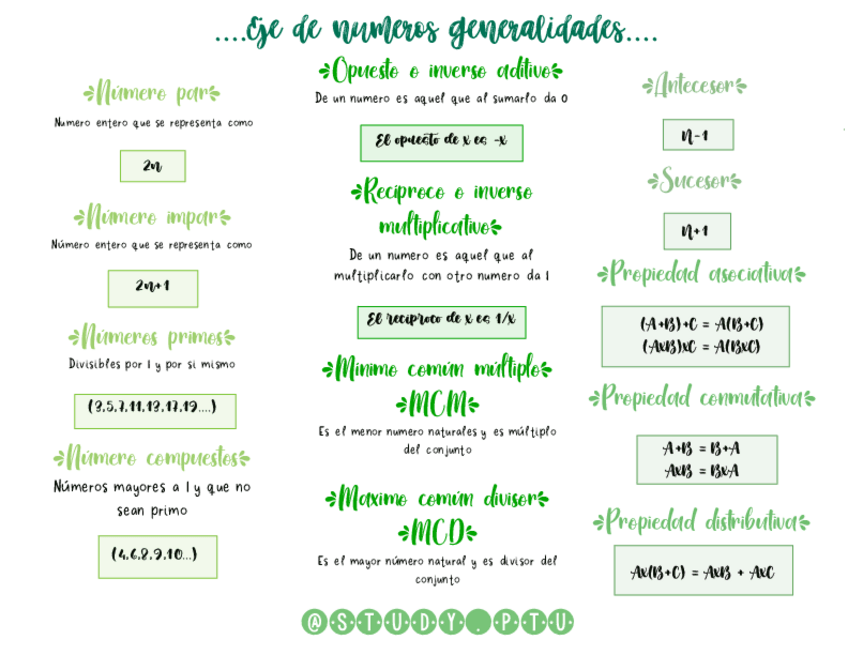 ....Eje de numeros generalidades....
Número par
Numero entero que se representa como
2n
Número impar
Número entero que se representa como
2n+1
Números primos
Divisibles por 1 y por si mismo
(3,5,7,11,13,17,19....)
Número compuestos
Números mayores a 1 y que no
sean primo
(4,6,8,9,10...)
Opuesto o inverso aditivo
De un numero es aquel que al sumarlo da 0
El opuesto de x es -x
Reciproco o inverso
multiplicativo
De un numero es aquel que al
multiplicarlo con otro numero da 1
El reciproco de x es 1/x
Minimo común múltiplo
MCM
Es el menor numero naturales y es múltiplo
del conjunto
Maximo común divisor
MCD
Es el mayor número natural y es divisor del
conjunto
Antecesor
N-1
Sucesor
N+1
Propiedad asociativa
(A+B)+C = A(B+C)
(AxB)xC = A(BxC)
Propiedad conmutativa
A+B = B+A
AxB = BxA
Propiedad distributiva
Ax(B+C) = AxB + AxC
@STUDY_PTU